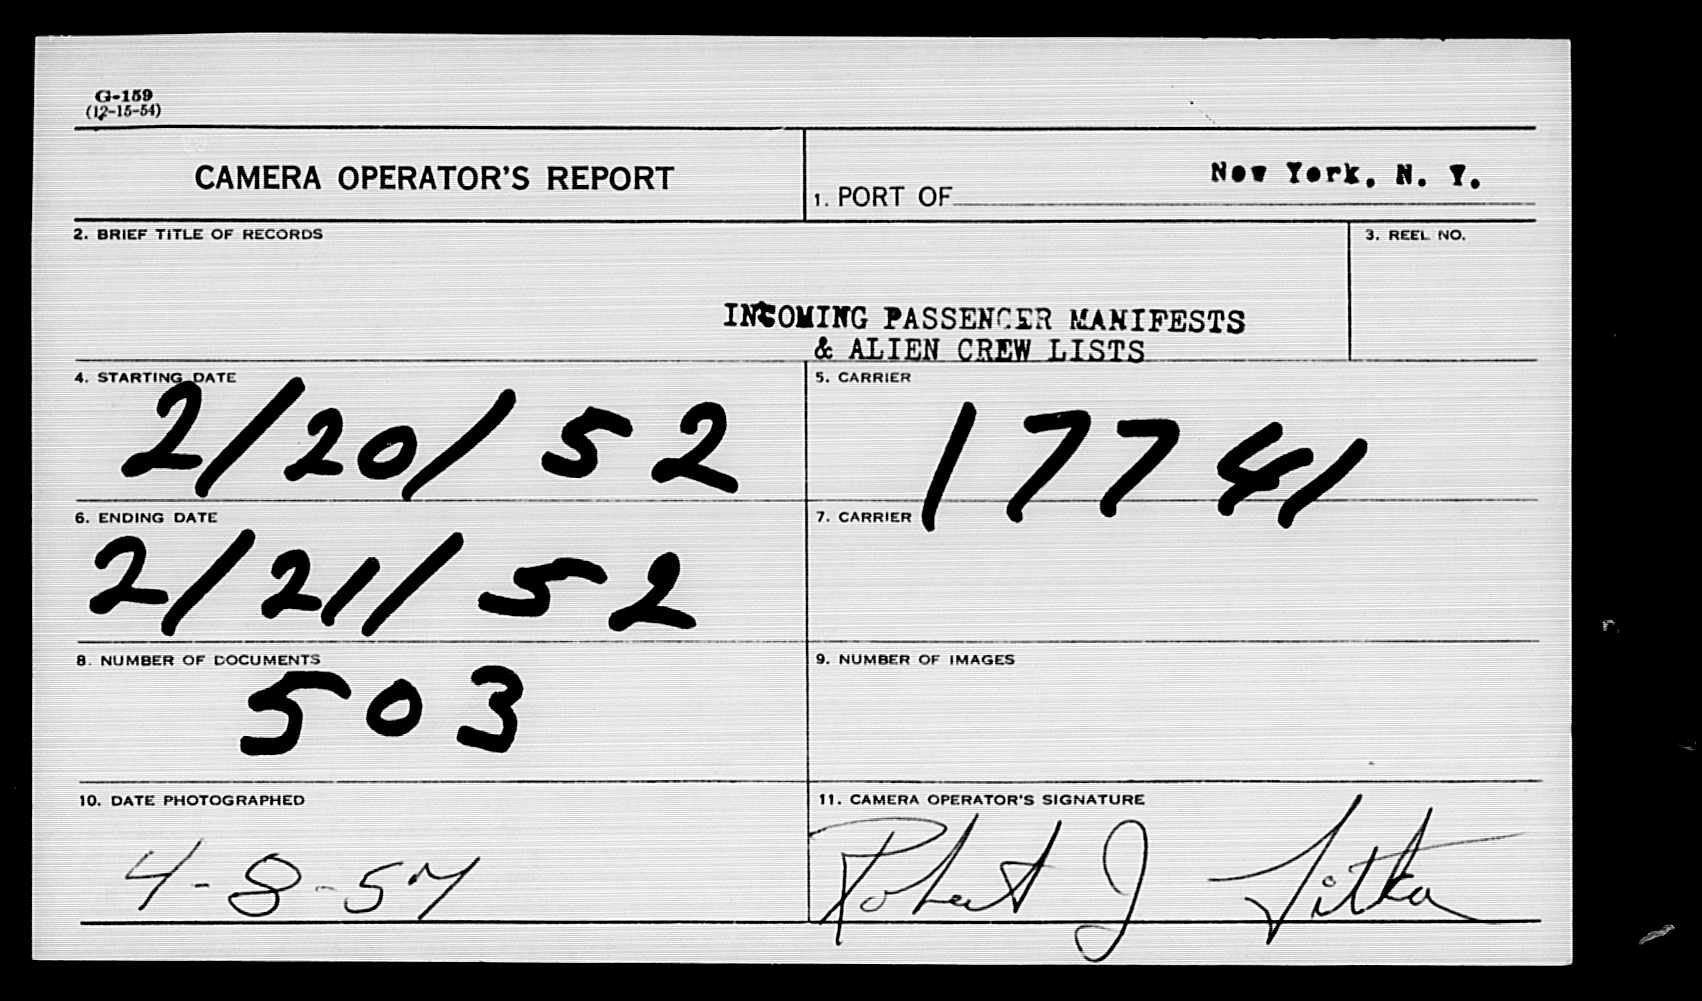 G-159
(12-15-54)
CAMERA OPERATOR'S REPORT
1. PORT OF New York, N. Y.
2. BRIEF TITLE OF RECORDS
3. REEL NO.
INCOMING PASSENGER MANIFESTS
& ALIEN CREW LISTS
4. STARTING DATE
2/20/52
5. CARRIER
17741
6. ENDING DATE
2/21/52
7. CARRIER
8. NUMBER OF DOCUMENTS
503
9. NUMBER OF IMAGES
10. DATE PHOTOGRAPHED
4-8-57
11. CAMERA OPERATOR'S SIGNATURE
Robert J